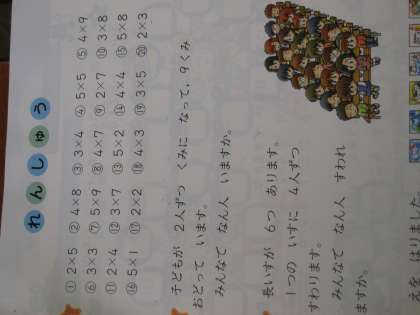 れんしゅう
① 2×5 ② 4×8 ③ 3×4 ④ 5×5 ⑤ 4×9
⑥ 3×3 ⑦ 5×9 ⑧ 4×7 ⑨ 2×7 ⑩ 3×8
⑪ 2×4 ⑫ 3×7 ⑬ 5×2 ⑭ 4×4 ⑮ 5×8
⑯ 5×1 ⑰ 2×2 ⑱ 4×3 ⑲ 3×5 ⑳ 2×3
子どもが 2人ずつ くみに なって，9くみ
おどって います。
みんなで なん人 いますか。
長いすが 6つ あります。
1つの いすに 4人ずつ
すわります。
みんなで なん人 すわれ
ますか。
えを はりました。